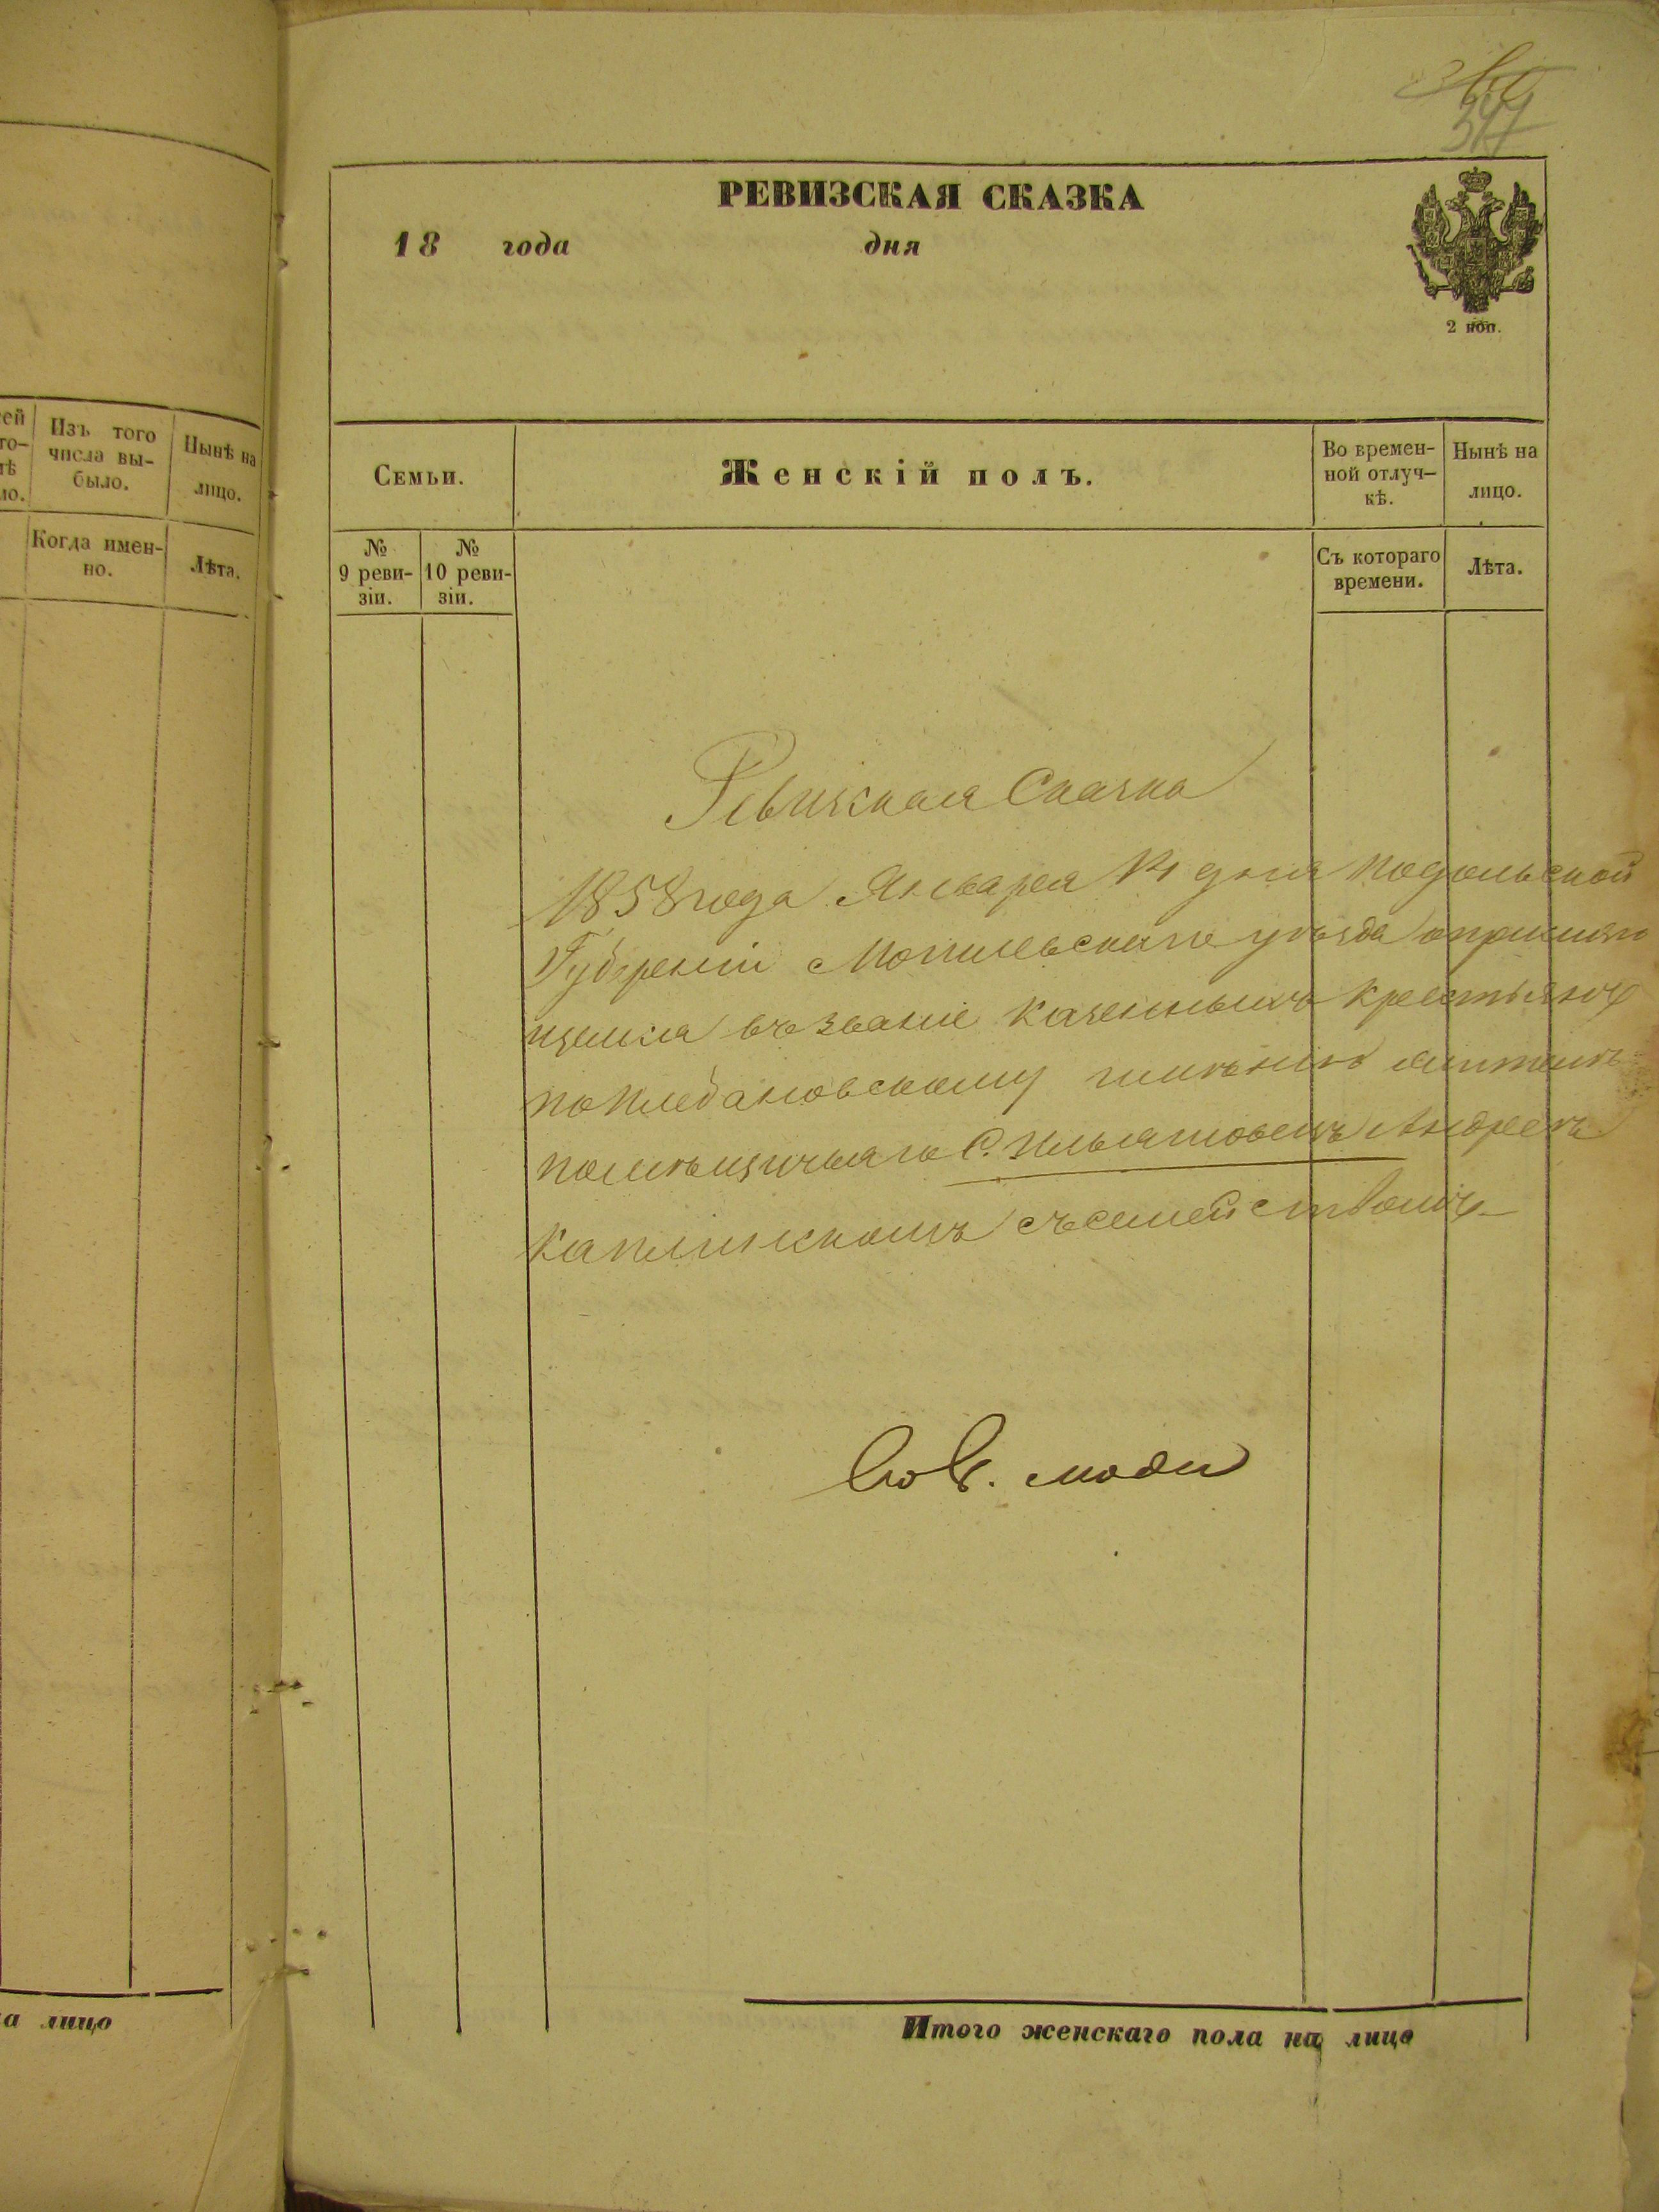 347
РЕВИЗСКАЯ СКАЗКА
18 года дня
2 коп.
ей
Изъ того числа вы-было.
Нынѣ на лицо.
Когда имен-но.
Лѣта.
Семьи.
Женскій полъ.
Во времен-
ной отлуч-
кѣ.
Нынѣ на
лицо.
№
9 реви-
зіи.
№
10 реви-
зіи.
Съ котораго
времени.
Лѣта.
Ревизская Сказка
1858 года Января дня Подольской
Губерніи Могилевскаго уѣзда о
въ званіе казенныхъ крестьянъ
имѣнію
помѣщичьяго С. Ильяшовецъ Андреѣ
Каплинскомъ съ семействомъ
люди
а лицо
Итого женскаго пола на лицо